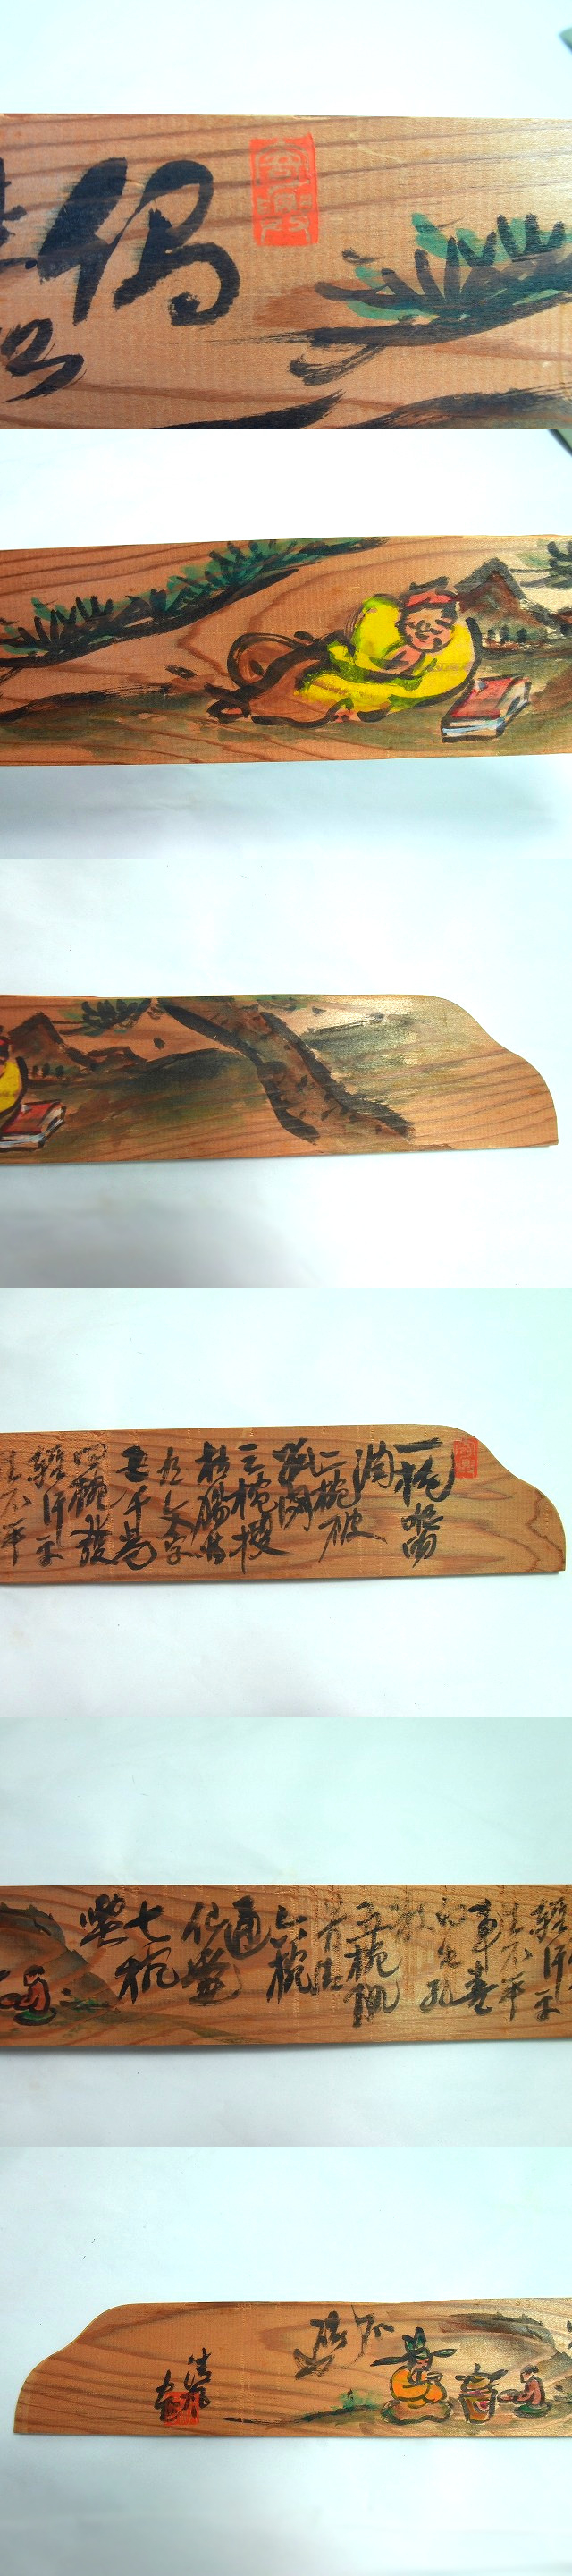 偈
一椀喉吻
潤
二椀破
孤悶
三椀搜
枯腸惟
有文字
五千卷
四椀發
輕汗平
生不平
事盡
向毛孔
散
五椀肌
骨清
六椀
通
仙靈
七椀
喫
不